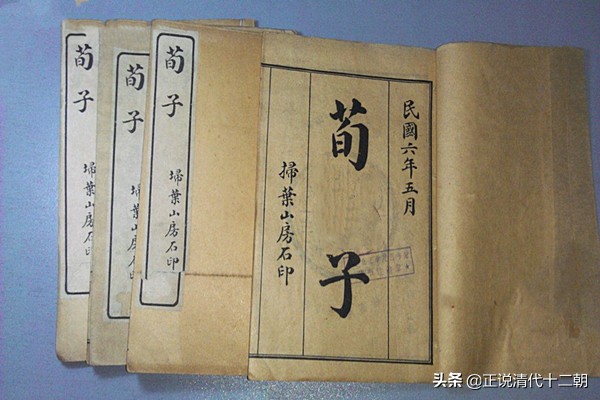 荀子
埽葉山房石印
荀子
埽葉山房石印
荀子
埽葉山房石印
民國六年五月
荀子
掃葉山房石印
头条 @正说清代十二朝